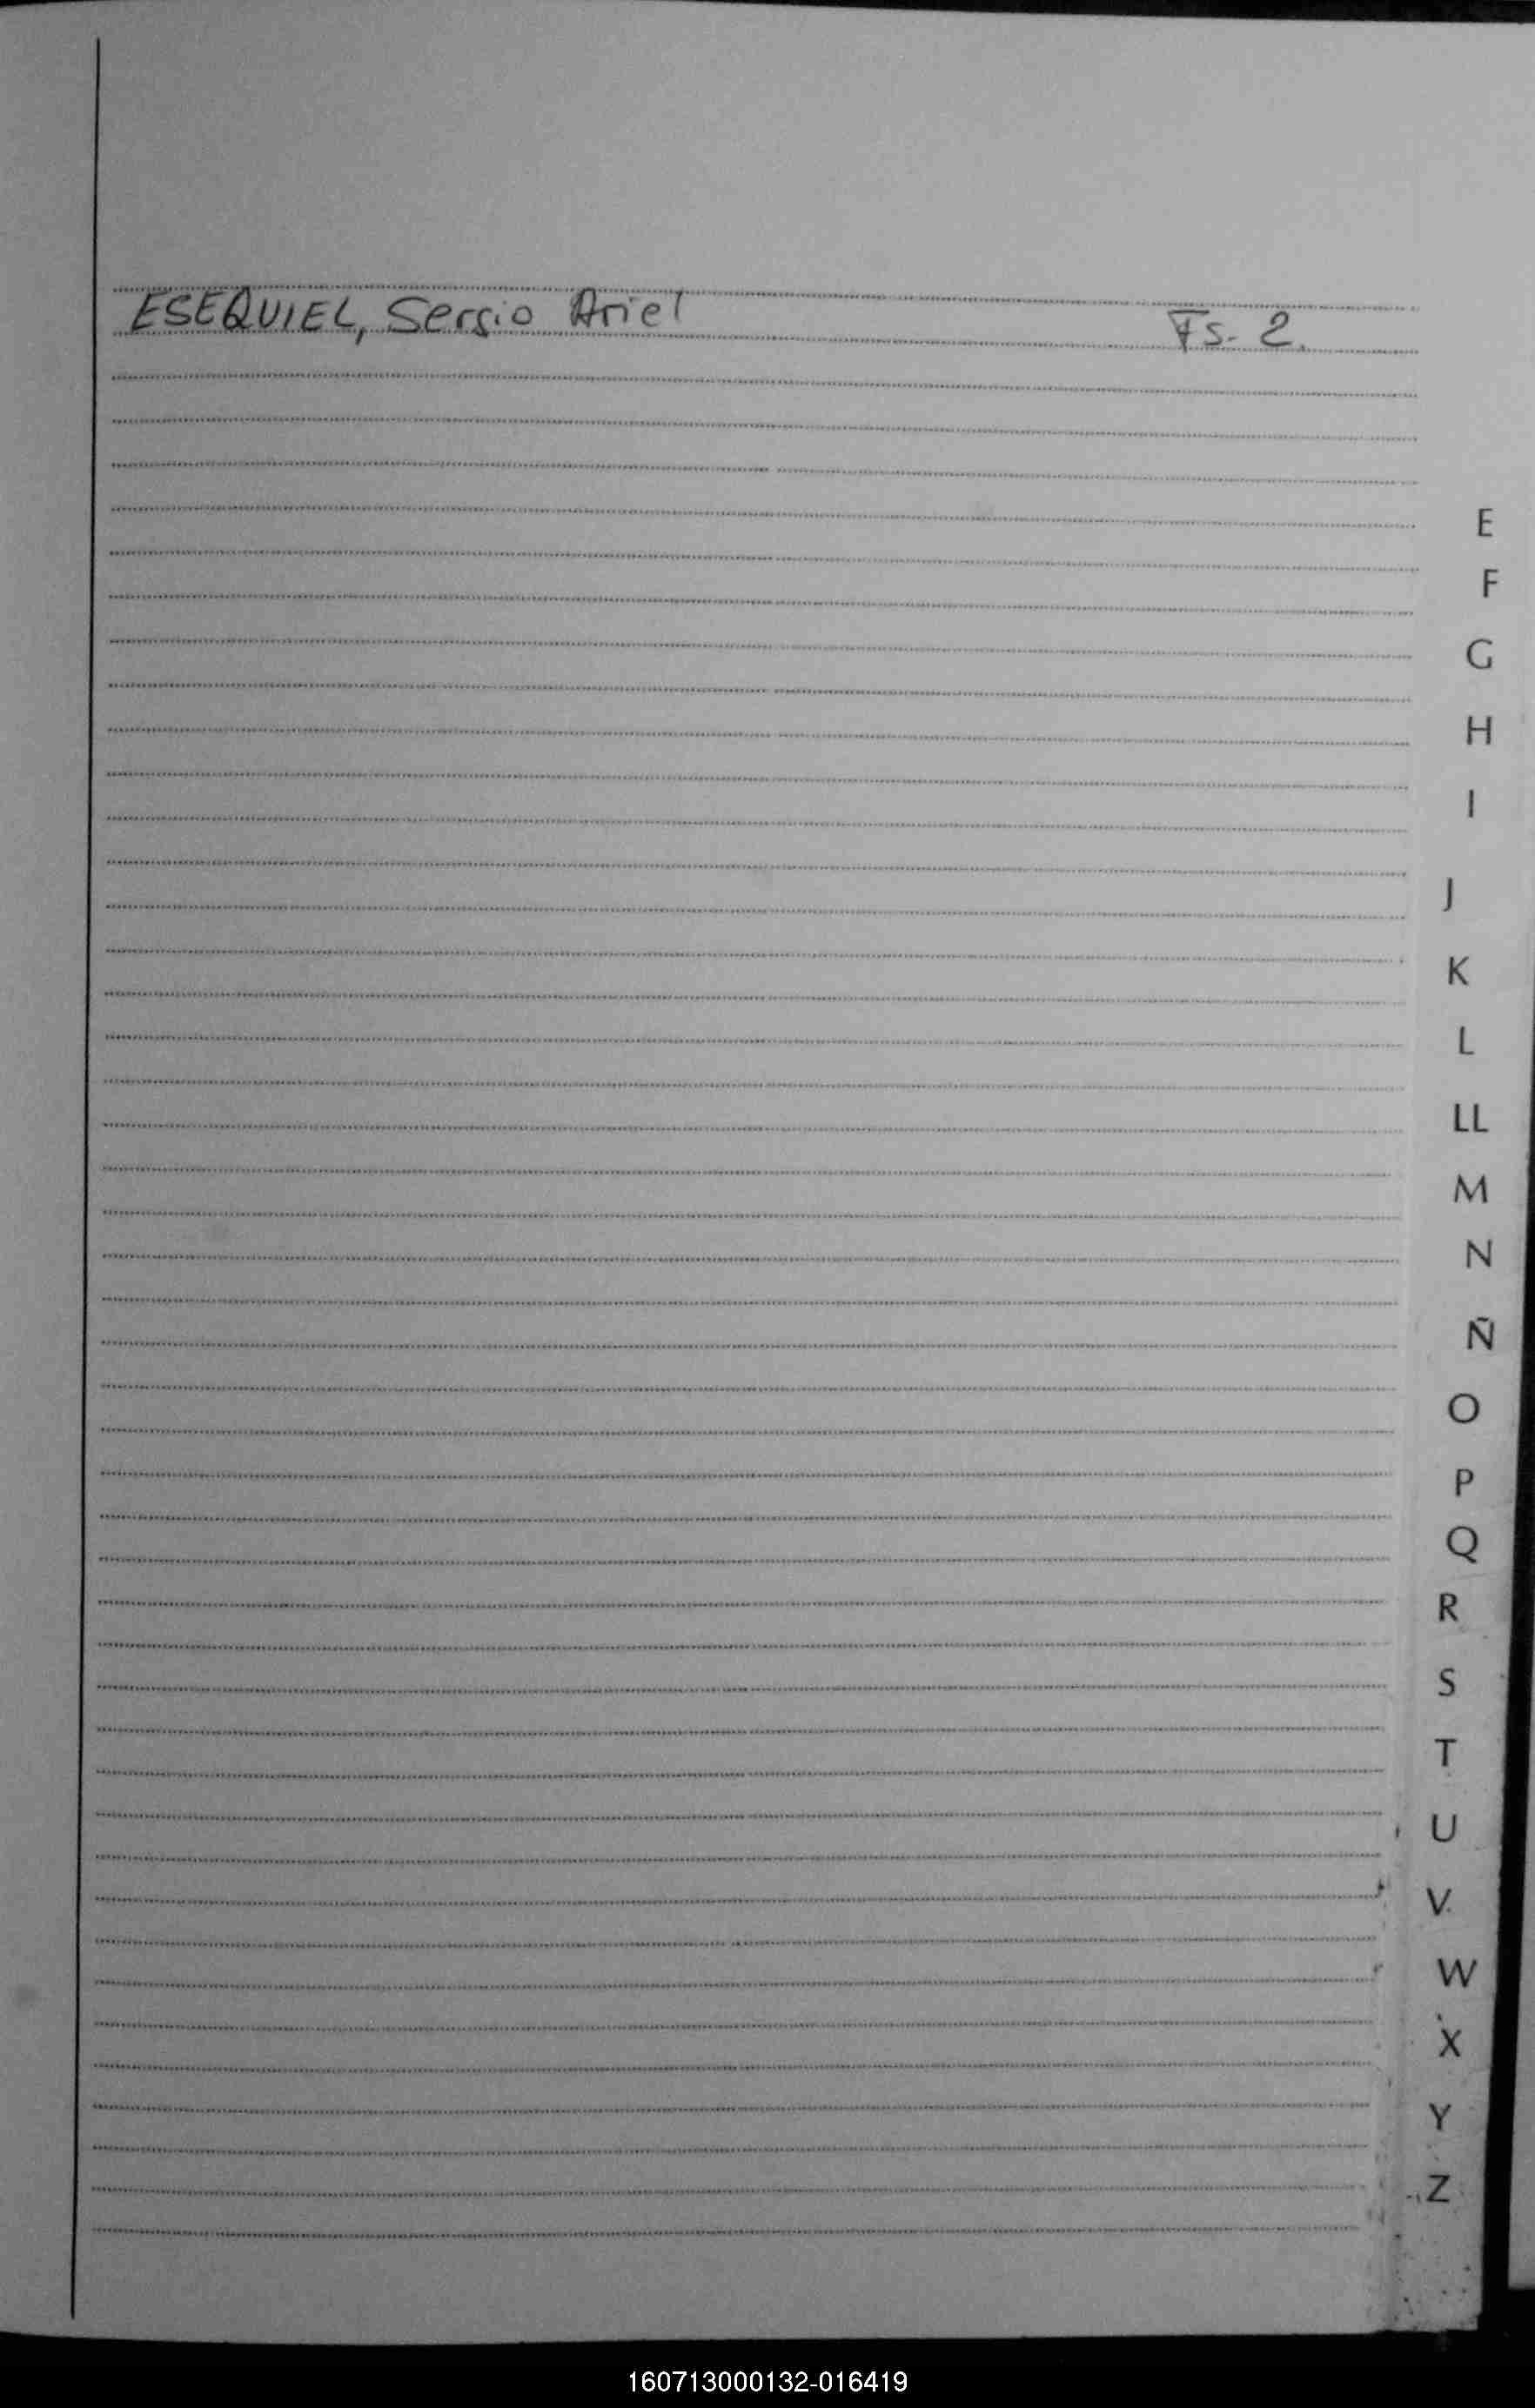 ESEQUIEL, Sergio Ariel Fs. 2.
E
F
G
H
I
J
K
L
LL
M
N
Ñ
O
P
Q
R
S
T
U
V
W
X
Y
Z
160713000132-016419